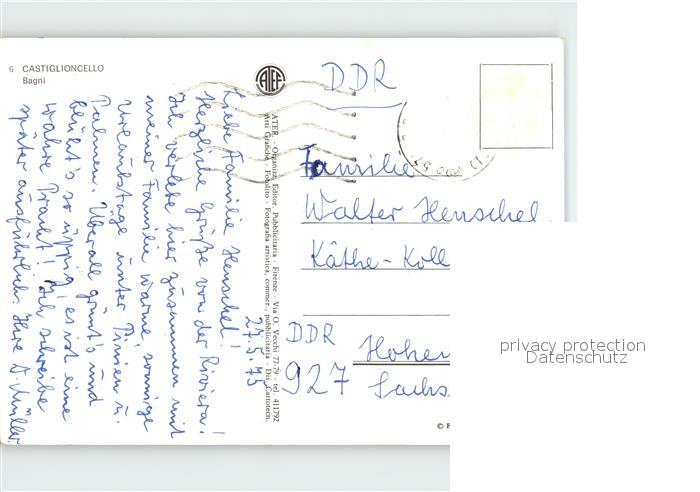 6 CASTIGLIONCELLO
Bagni
27.5.75
Liebe Familie Henschel!
Herzliche Grüße von der Riviera!
Ich verlebe hier zusammen mit
meiner Familie warme, sonnige
Urlaubstage unter Pinien u.
Palmen. Überall grünt's und
blüht's so üppig, es ist eine
wahre Pracht! Ich schreibe
später ausführlich. Ihre D. Müller
ATEF - Organizz. Editor. Pubblicitaria - Firenze - Via O. Vecchi 77-79 - tel. 411792
Arti Grafiche - Fotolito - Fotografia artistica, commer., pubblicitaria - Dis. Cartotecn.
ATEF
DDR
Familie
Walter Henschel
Käthe-Koll
DDR
Hohen
927 Sachs
©
privacy protection
Datenschutz